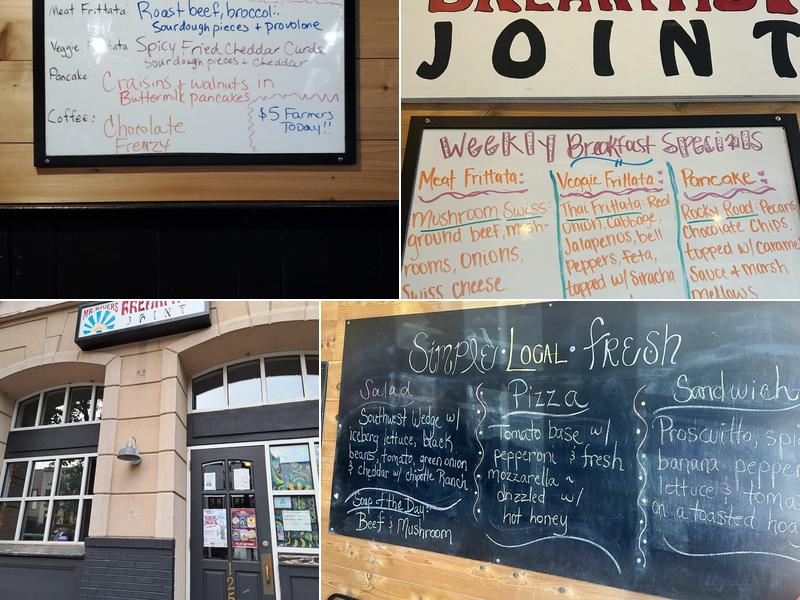 Meat Frittata: Roast beef, broccoli.
Sourdough pieces + Provolone
Veggie Frittata Spicy Fried Cheddar Curds
Sourdough pieces + Cheddar
Pancake: Craisins + walnuts in
Buttermilk pancakes
Coffee: Chocolate
Frenzy
$5 Farmers
Today!!
JOINT
Weekly Breakfast Specials
Meat Frittata:
Mushroom Swiss:
ground beef, mush-
rooms, onions,
swiss cheese
Veggie Frittata:
Thai Frittata: Red
Onion, Cabbage,
Jalapenos, bell
Peppers, feta,
topped w/ Siracha
Pancake:
Rocky Road: Pecans
Chocolate Chips,
topped w/ carame
Sauce + marsh
mellows
MR. RIVERS
JOINT
125
Simple · Local · fresh
Salad
Southwest Wedge w/
iceberg lettuce, black
beans, tomato, green onion
& cheddar w/ chipotle Ranch
Soup of the Day:
Beef & Mushroom
Pizza
Tomato base w/
pepperoni & fresh
mozzarella ~
drizzled w/
hot honey
Sandwich
Proscuitto, spic
banana pepper
lettuce & toma
on a toasted hoa